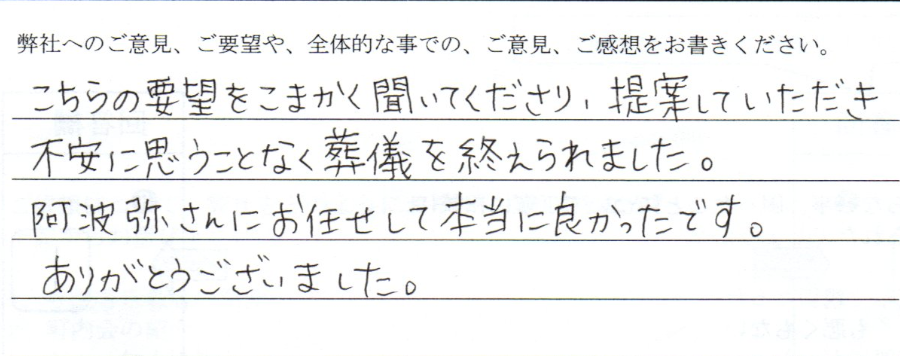 弊社へのご意見、ご要望や、全体的な事での、ご意見、ご感想をお書きください。
こちらの要望をこまかく聞いてくださり、提案していただき
不安に思うことなく葬儀を終えられました。
阿波弥さんにお任せして本当に良かったです。
ありがとうございました。